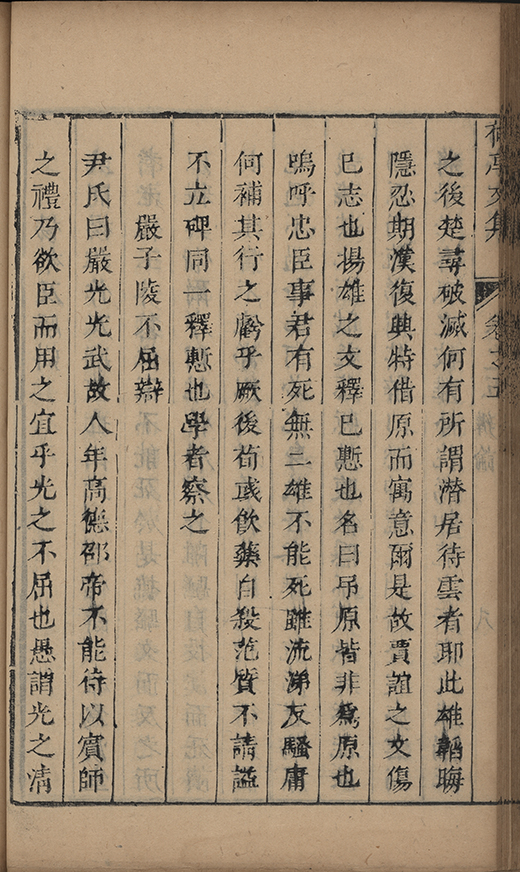 之後楚尋破滅何有所謂潛居待雲者耶此雄韜晦
隱忍期漢復興特借原而寓意爾是故賈誼之文傷
已志也揚雄之文釋已慙也名曰吊原皆非爲原也
嗚呼忠臣事君有死無二雄不能死雖流涕反騷庸
何補其行之虧乎厥後荀彧飲藥自殺范質不請謚
不立碑同一釋慙也學者察之
嚴子陵不屈辯
尹氏曰嚴光光武故人年高德邵帝不能待以賓師
之禮乃欲臣而用之宜乎光之不屈也愚謂光之清